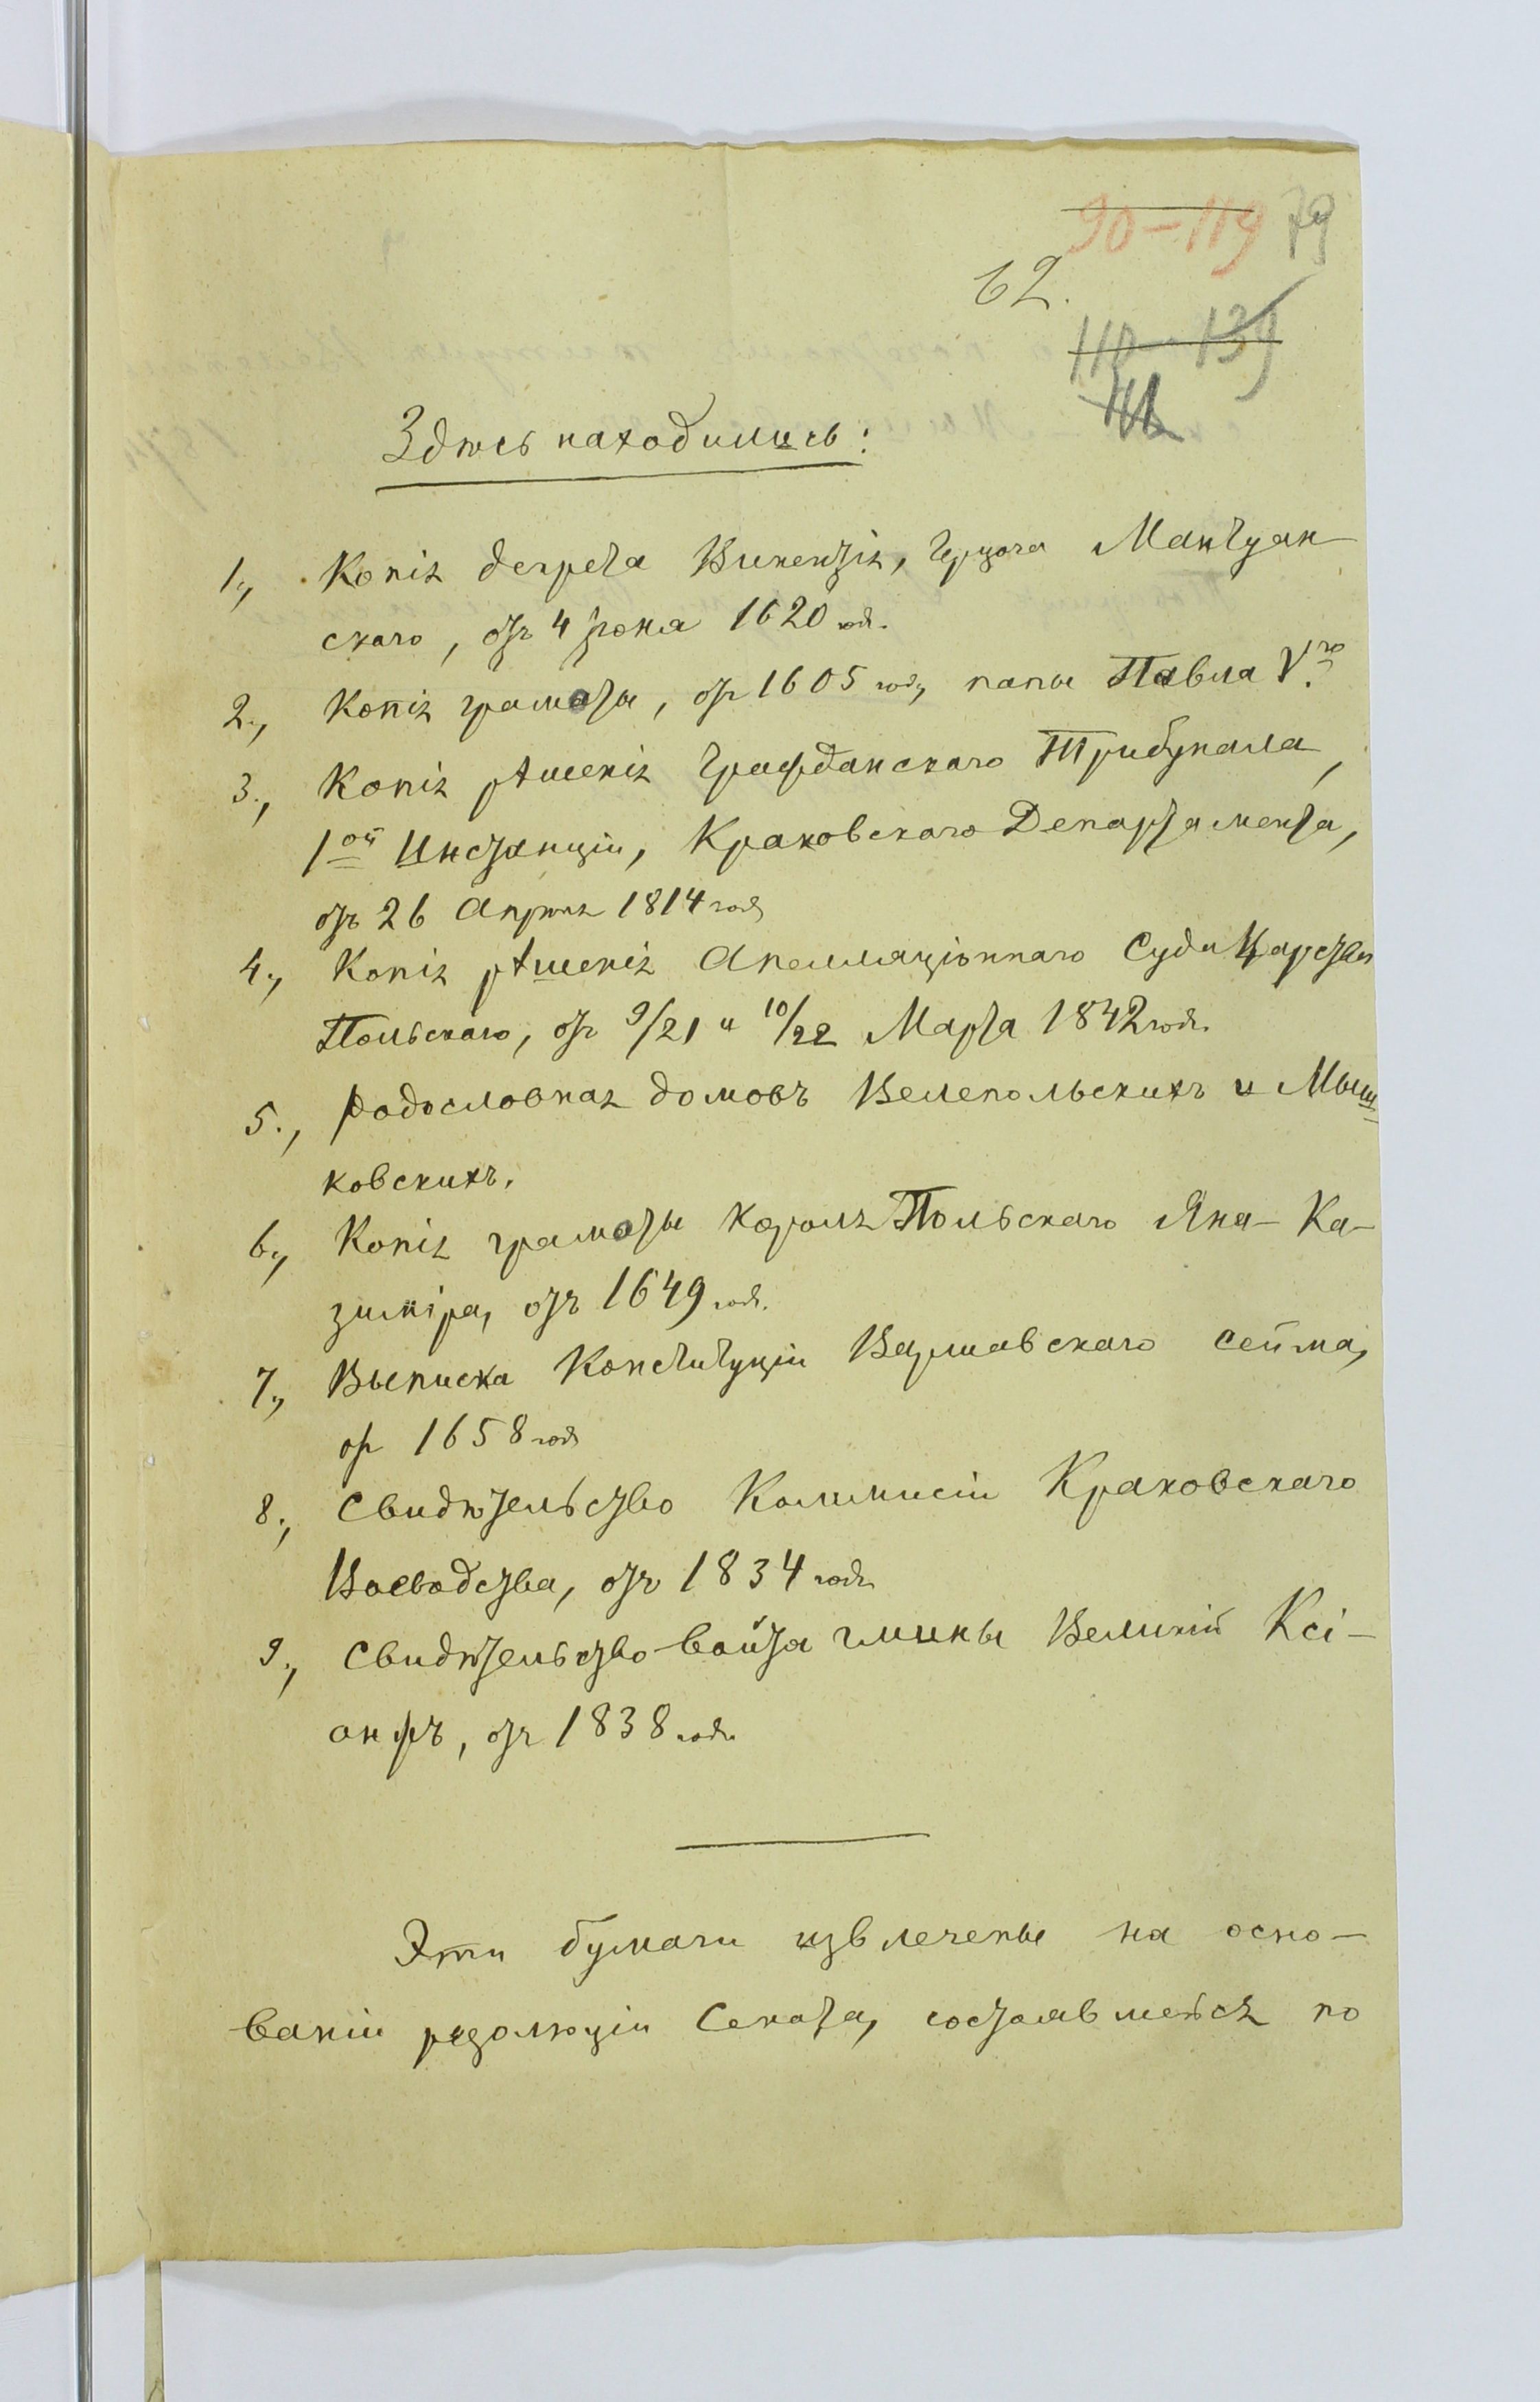 90-119 79
62.
110-139
Здѣсь находились:
1., Копія декрета Викентія, Герцога Мантуан-
скаго, отъ 4 Іюня 1620 год.
2., Копія грамоты, отъ 1605 год, папы Павла V го
3., Копія рѣшенія Гражданскаго Трибунала,
1ой Инстанціи, Краковскаго Департамента,
отъ 26 Апрѣля 1814 год.
4., Копія рѣшенія Апелляціоннаго Суда Царства
Польскаго, отъ 9/21 и 10/22 Марта 1842 год.
5., Родословная домовъ Велепольскихъ и Мыш-
ковскихъ.
6., Копія грамоты Короля Польскаго Яна-Ка-
зиміра, отъ 1649 год.
7., Выписка Конституціи Варшавскаго сейма,
отъ 1658 год
8., Свидѣтельство Коммисіи Краковскаго
Воеводства, отъ 1834 год.
9., Свидѣтельство войта гмины Великій Ксі-
онжъ, отъ 1838 год.
Эти бумаги извлечены на осно-
ваніи резолюціи Сената, состоявшейся по